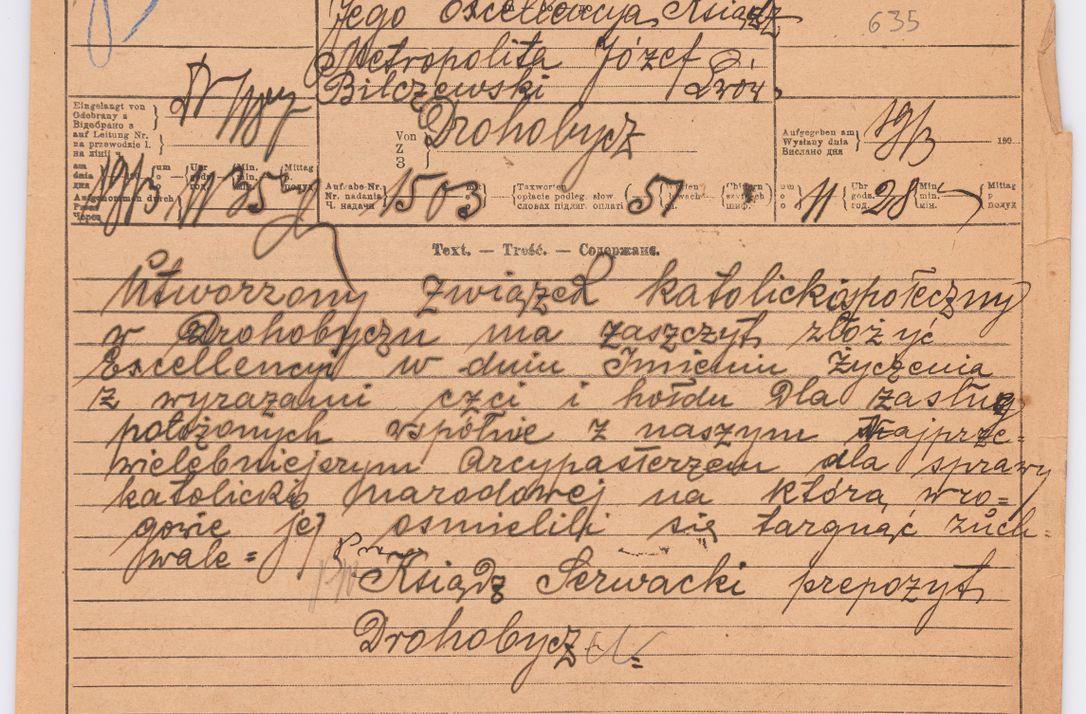 Jego Excellencya Ksiądz
635
Metropolita Józef
Bilczewski Lwów
Eingelangt von
Odebrany z
Відобрано з
auf Leitung Nr.
na przewodzie l.
на лінїї ч.
Von
Z
З
Drohobycz
Aufgegeben am
Wysłany dnia
Вислано дня
19/3
190
am
dnia
дня
19/3
190
um
o
о
11
Uhr
godz.
год.
35
Min.
min.
мін.
Mittag
p
полуд
Aufgenommen durch
Przez
Через
Aufgabe-Nr.
Nr. nadania
Ч. надачі
1503
Taxworten
opłacie podleg. słow
словах підлиг. оплаті
51
um
o
о
11
Uhr
godz.
год.
28
Min.
min.
мін.
Mittag
p
полуд
Text. — Treść. — Содержанє.
Utworzony związek katolickospołeczny
w Drohobyczu ma zaszczyt złożyć
Excellencyi w dniu Imienin życzenia
z wyrazami czci i hołdu dla zasług
położonych wspólnie z naszym Najprze=
wielebniejszym Arcypasterzem dla sprawy
katolicko narodowej na którą wro=
gowie jej osmielili się targnąć zuch=
wale =
Ksiądz Serwacki prepozyt
Drohobycz =